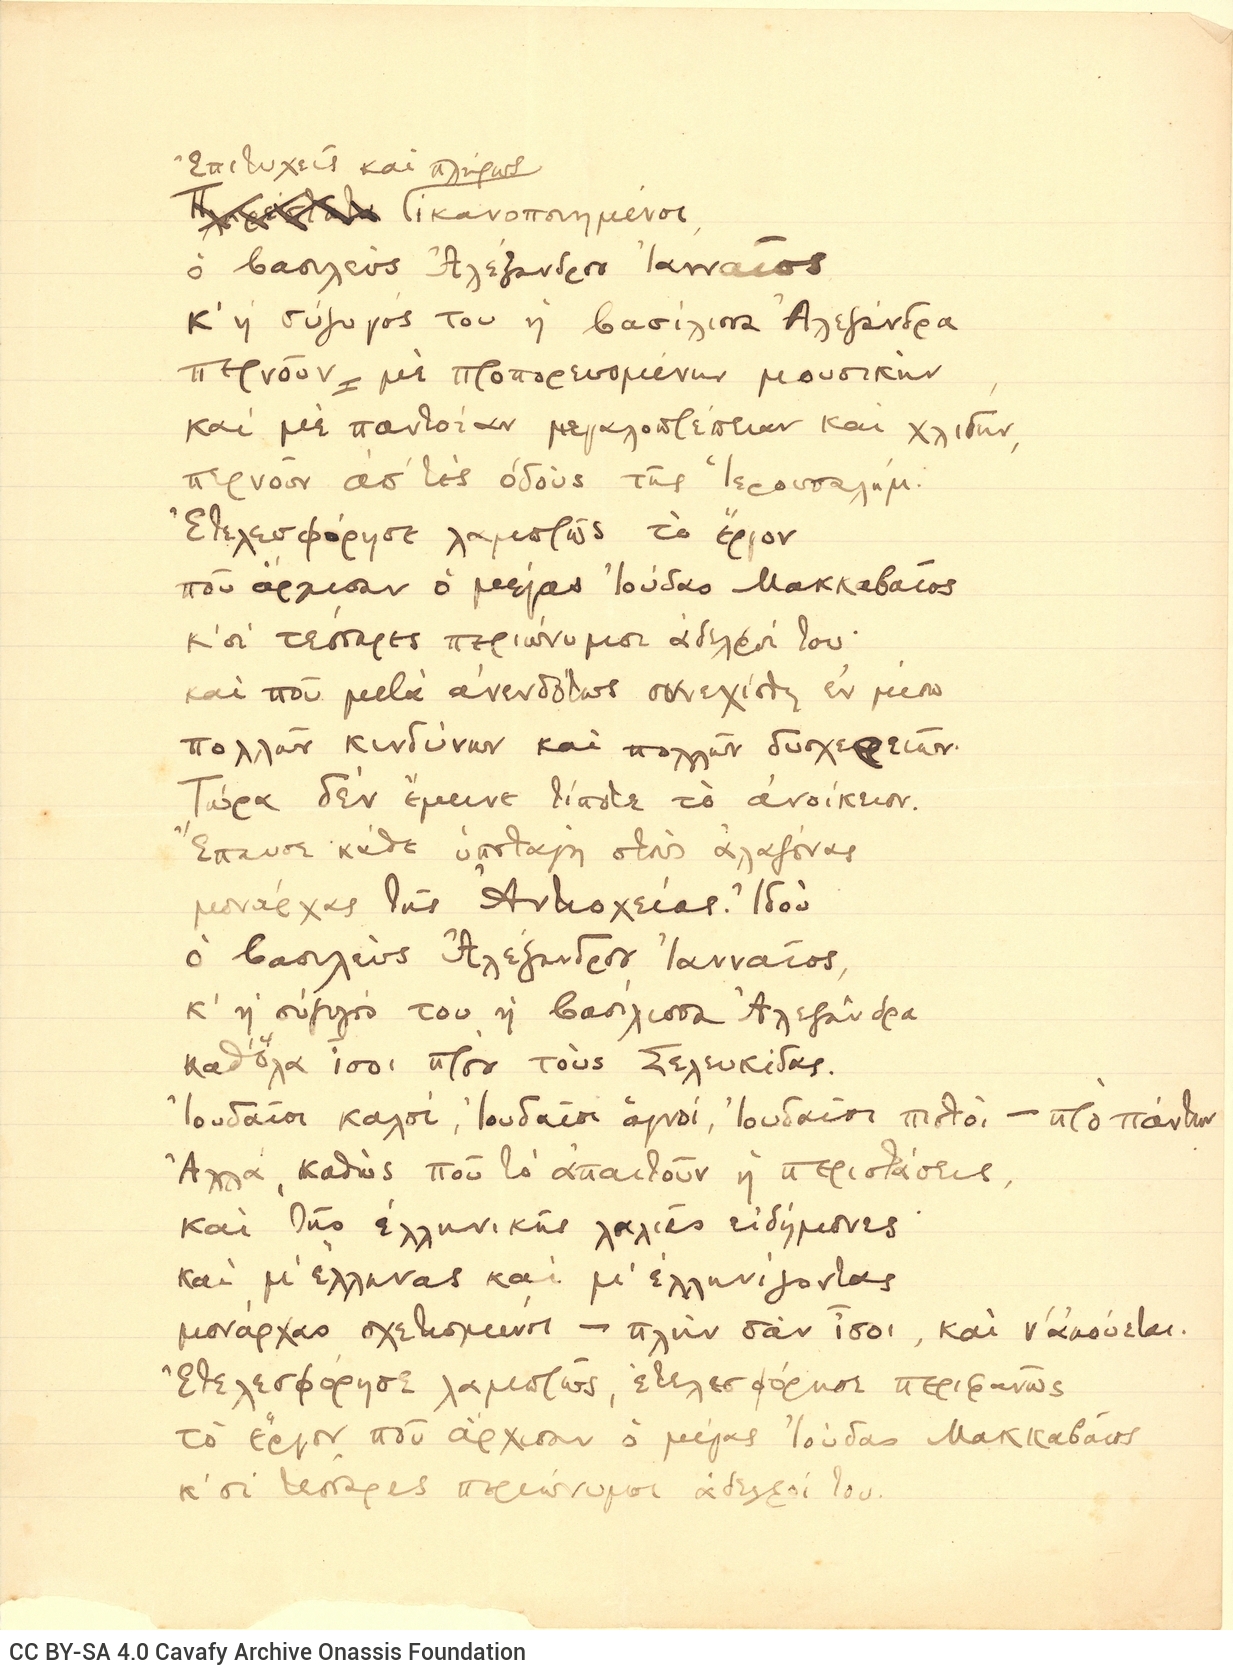 Ἐπιτυχεῖς καὶ πλήρως
ἱκανοποιημένοι,
ὁ βασιλεὺς Ἀλέξανδρος Ἰανναῖος
κ' ἡ σύζυγός του ἡ βασίλισσα Ἀλεξάνδρα
περνοῦν μὲ προπορευομένην μουσικὴν
καὶ μὲ παντοίαν μεγαλοπρέπειαν καὶ χλιδήν,
περνοῦν ἀπ' τὲς ὁδοὺς τῆς Ἱερουσαλήμ.
Ἐτελεσφόρησε λαμπρῶς τὸ ἔργον
ποὺ ἄρχισαν ὁ μέγας Ἰούδας Μακκαβαῖος
κ' οἱ τέσσαρες περιώνυμοι ἀδελφοί του·
καὶ ποὺ μετὰ ἀνενδότως συνεχίσθη ἐν μέσῳ
πολλῶν κινδύνων καὶ πολλῶν δυσχερειῶν.
Τώρα δὲν ἔμεινε τίποτε τὸ ἀνοίκειον.
Ἔπαυσε κάθε ὑποταγὴ στοὺς ἀλαζόνας
μονάρχας τῆς Ἀντιοχείας. Ἰδοὺ
ὁ βασιλεὺς Ἀλέξανδρος Ἰανναῖος,
κ' ἡ σύζυγός του ἡ βασίλισσα Ἀλεξάνδρα
καθ' ὅλα ἴσοι πρὸς τοὺς Σελευκίδας.
Ἰουδαῖοι καλοί, Ἰουδαῖοι ἁγνοί, Ἰουδαῖοι πιστοὶ — πρὸ πάντων
Ἀλλά, καθὼς ποὺ τὸ ἀπαιτοῦν ἡ περιστάσεις,
καὶ τῆς ἑλληνικῆς λαλιᾶς εἰδήμονες·
καὶ μ' ἕλληνας καὶ μ' ἑλληνίζοντας
μονάρχας σχετισμένοι — πλὴν σὰν ἴσοι, καὶ ν' ἀκούεται.
Ἐτελεσφόρησε λαμπρῶς, ἐτελεσφόρησε περιφανῶς
τὸ ἔργον ποὺ ἄρχισαν ὁ μέγας Ἰούδας Μακκαβαῖος
κ' οἱ τέσσαρες περιώνυμοι ἀδελφοί του.
CC BY-SA 4.0 Cavafy Archive Onassis Foundation